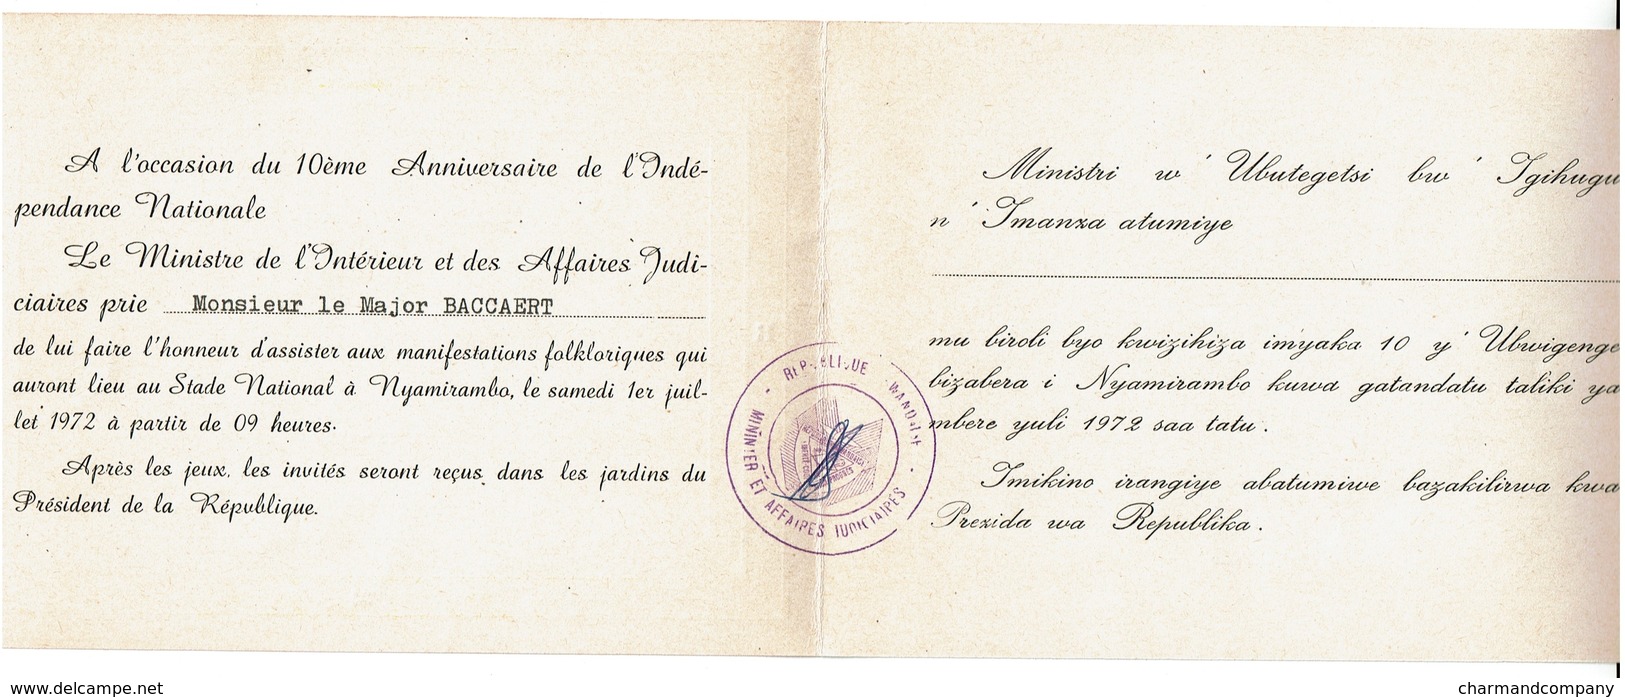 A l'occasion du 10ème Anniversaire de l'Indé-
pendance Nationale
Le Ministre de l'Intérieur et des Affaires Judi-
ciaires prie Monsieur le Major BACCAERT
de lui faire l'honneur d'assister aux manifestations folkloriques qui
auront lieu au Stade National à Nyamirambo, le samedi 1er juil-
let 1972 à partir de 09 heures.
Après les jeux, les invités seront reçus dans les jardins du
Président de la République.
MININTER ET AFFAIRES JUDICIAIRES
Ministri w' Ubutegetsi bw' Igihugu
n' Imanza atumiye
mu biroli byo kwizihiza imyaka 10 y' Ubwigenge
bizabera i Nyamirambo kuwa gatandatu taliki ya
mbere yuli 1972 saa tatu.
Imikino irangiye abatumiwe bazakilirwa kwa
Prezida wa Republika.
delcampe.net
charmandcompany